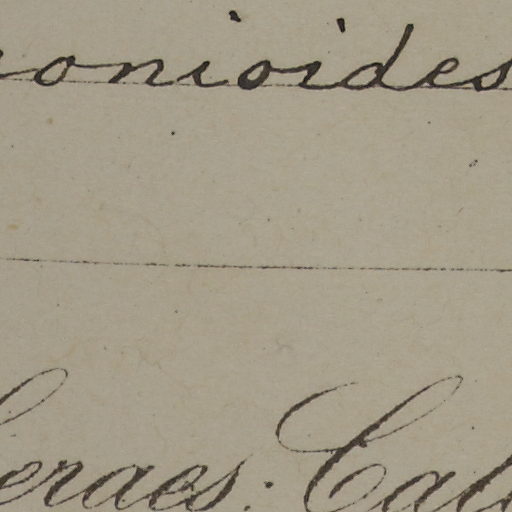 onioides
eraes: Cal